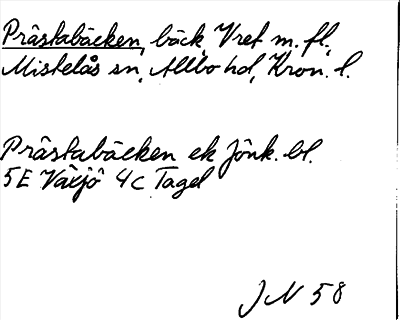 Prästabäcken, bäck, Vret m. fl.,
Mistelås sn, Allbo hd, Kron. l.
Prästabäcken ek Jönk. bl.
5E Växjö 4c Tagel
JN 58